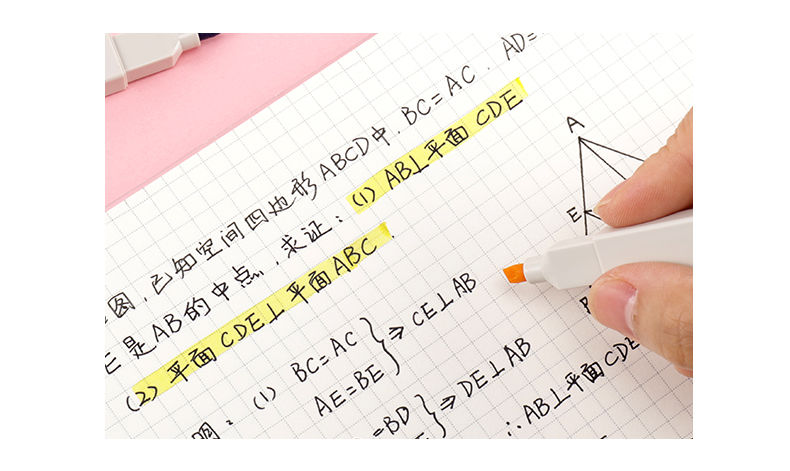 已知空间四边形ABCD中.BC=AC.AD=
E是AB的中点,求证:(1)AB⊥平面CDE
(2)平面CDE⊥平面ABC.
(1) BC=AC
AE=BE
⇒ CE⊥AB
=BD
⇒DE⊥AB
∴AB⊥平面CDE
A
E